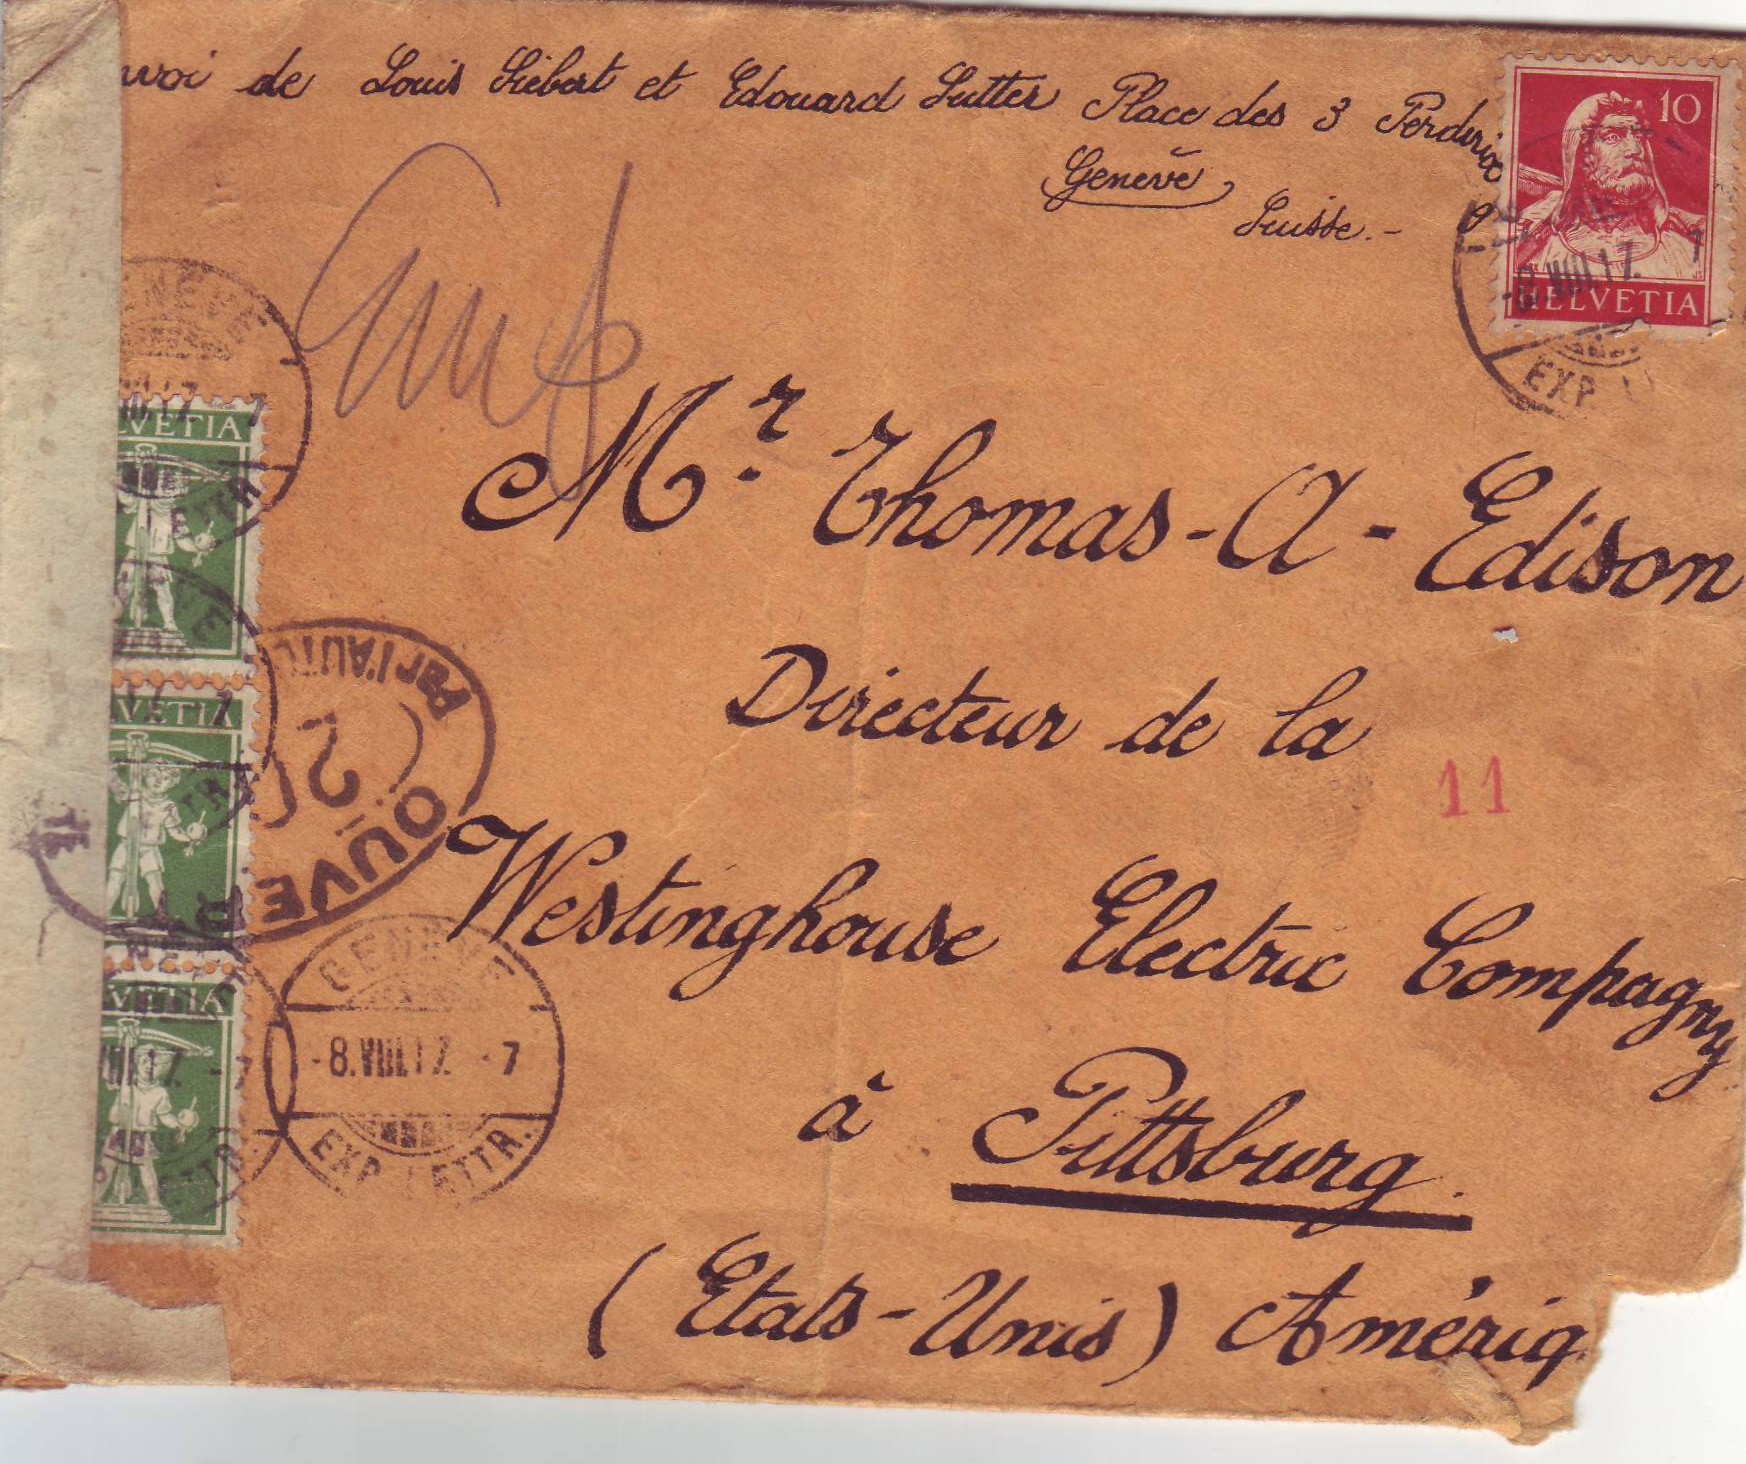 de Louis Siebert et Edouard Sutter Place des 3 Perdrix
Genève
Suisse.-
10
HELVETIA
-8.VIII.17. 7
EXP.
Mr. Thomas-A-Edison
Directeur de la
11
Westinghouse Electric Compagny
à Pittsburg.
(Etats-Unis) Amériq
GENÈVE
LVETIA
VETIA
VETIA
Par l'AUT
OUVE
GENÈVE
-8.VIII.17. -7
EXP. LETTR.